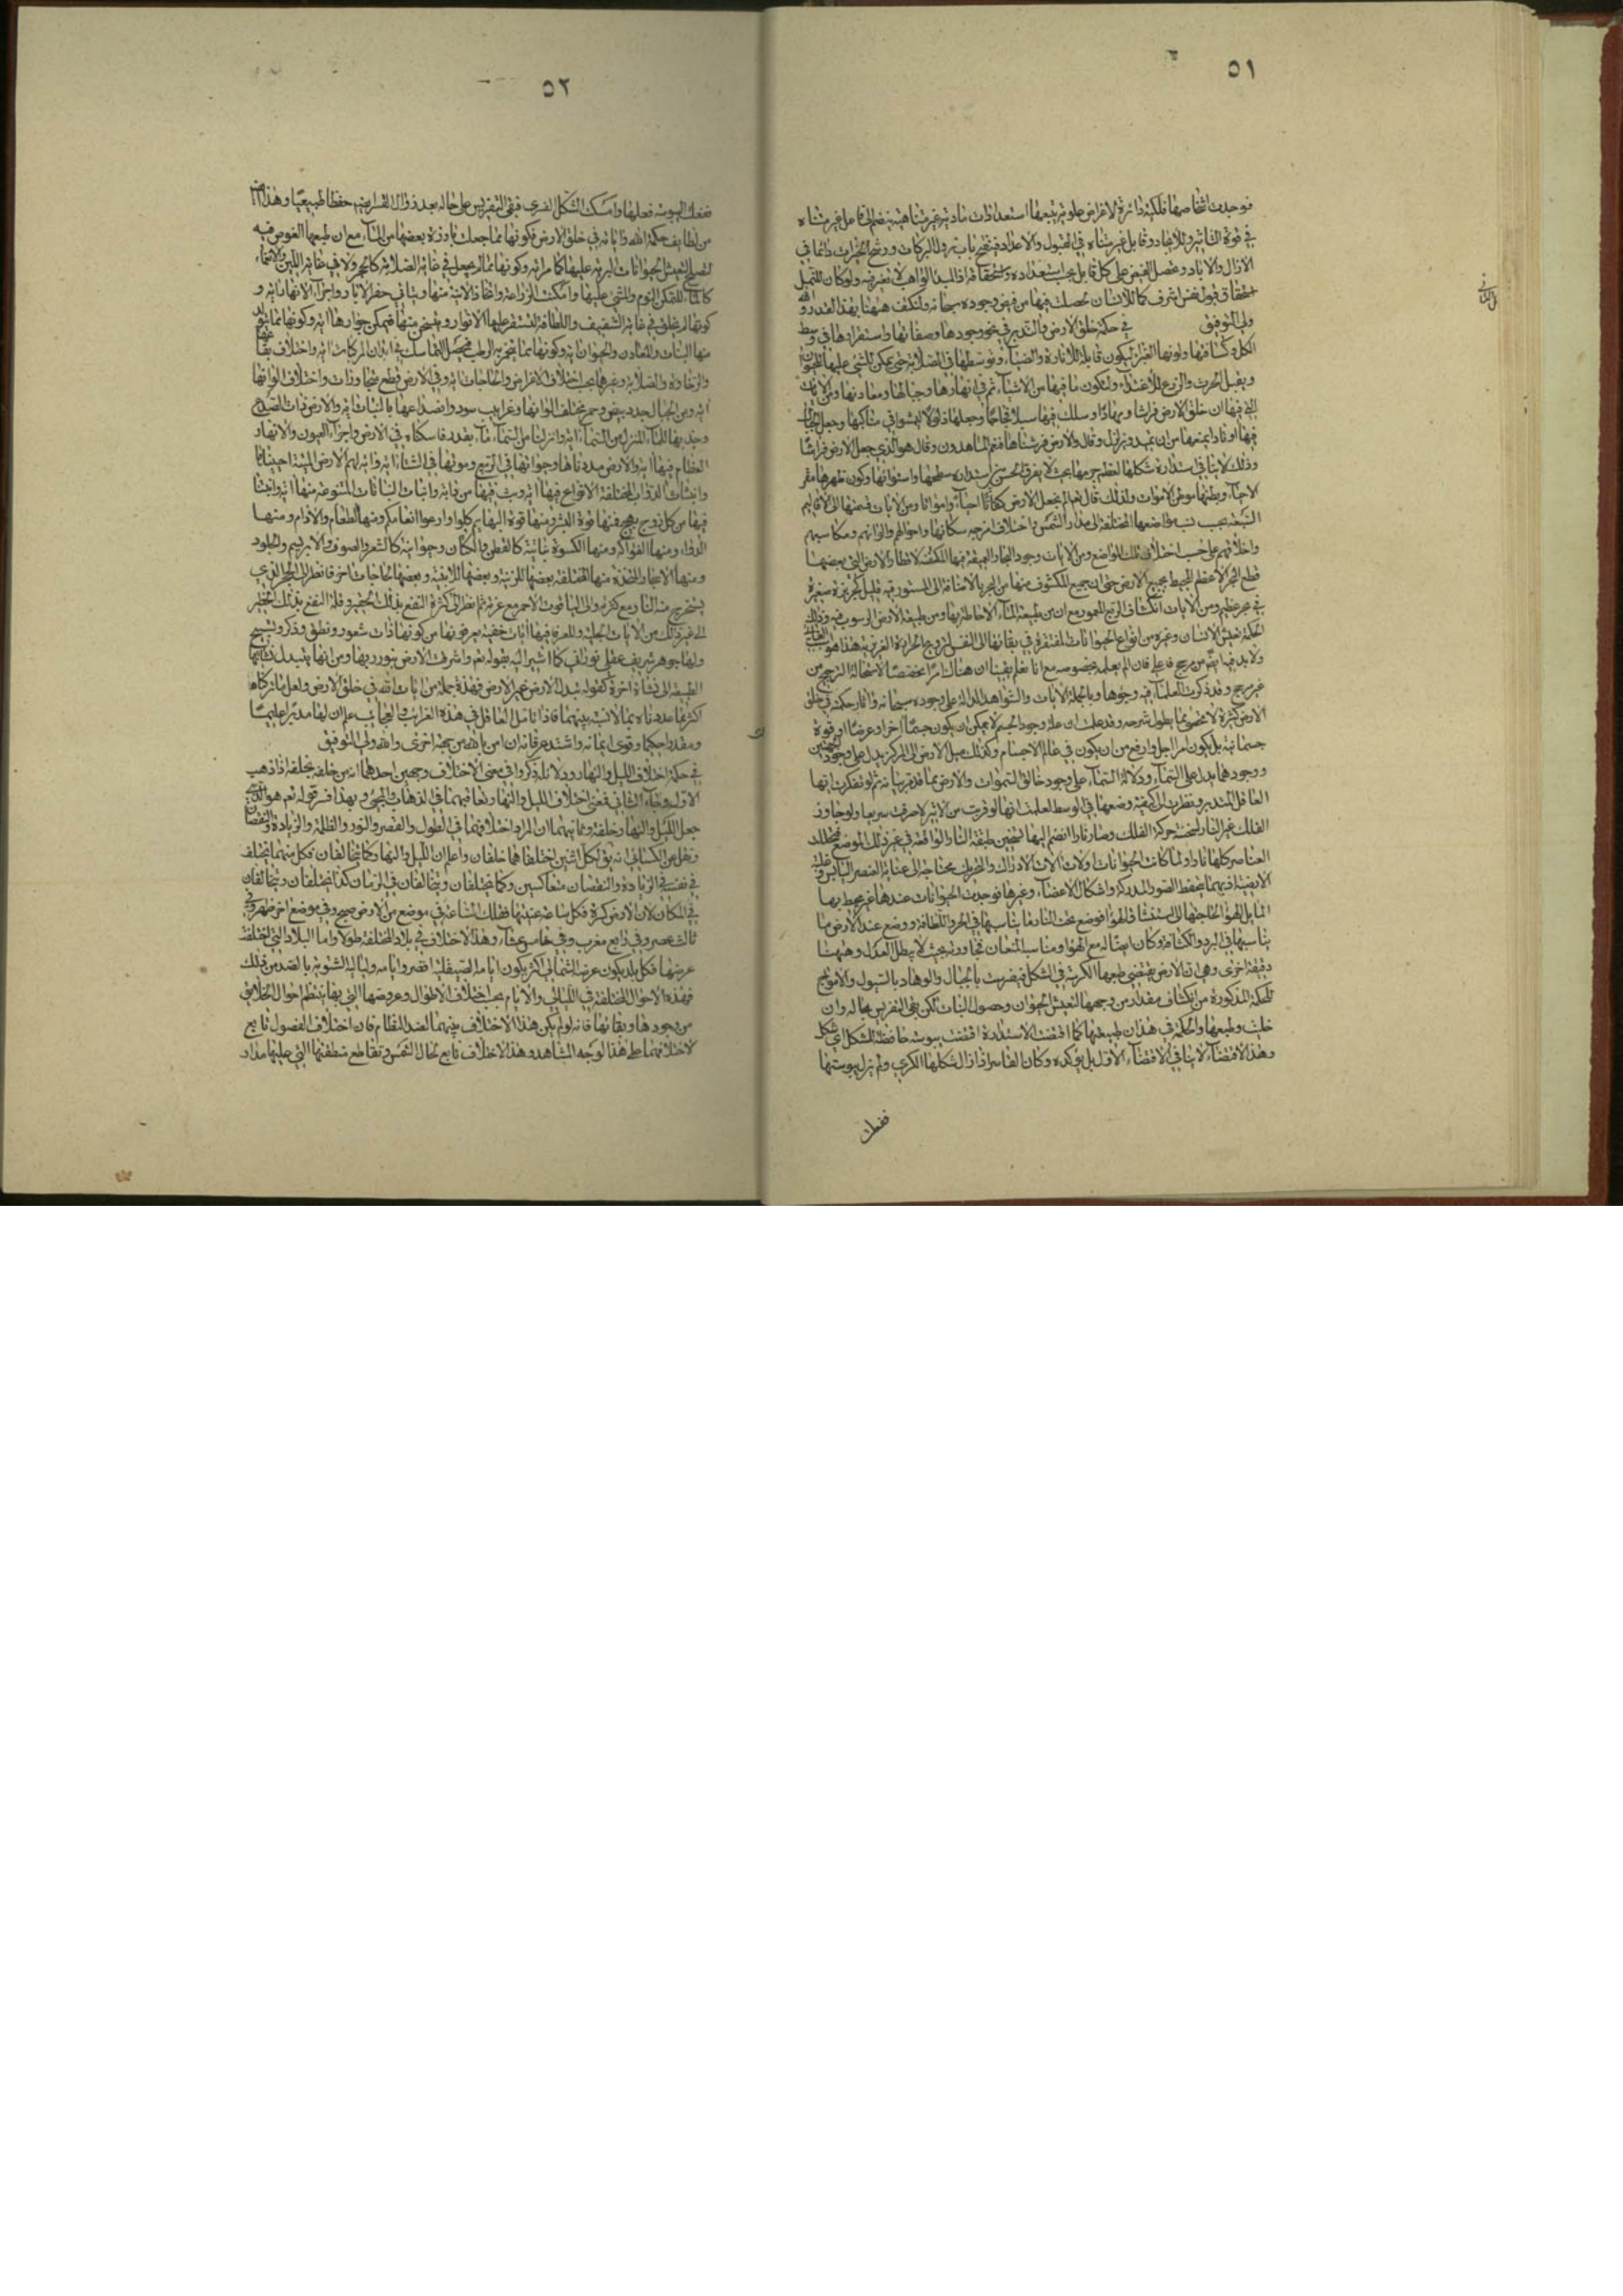 ٥١
فوجدت اشخاصها فلكية دائرة لاغراض علوية يتبعها استعدادات مادية غير متناهية ينضم الى فاعل غير متناه
في قوة التأثير وللايجاد وقابل غير متناه في القبول والاعداد فينفتح باب نزول البركات ورشح الخيرات دائما في
الازال والاباد وحصل الفيض على كل قابل بحسب استعداده واستحقاقه اذ المبدأ الواهب لا تغير فيه ولو كان للنمل
استحقاق قبول نفس اشرف كما للانسان لحصلت فيها من فيض وجوده سبحانه ولنكتف ههنا بهذا القدر والله
ولي التوفيق في حكمة خلق الارض والتدبير في نحو وجودها وصفاتها واستقرارها في وسط
الكل وكثافتها ولونها الغبراء ليكون قابلة للانارة والضياء وتوسطها في الصلابة حتى يمكن المشي عليها للحيوان
ويقبل الحرث والزرع للاغتذاء ولتكون ما فيها من الاشياء ثم في انهارها وجبالها ومعادنها ومن الايات
التي فيها ان خلق الارض فراشا ومهادا وسلك فيها سبلا فجاجا وجعلها ذلولا ليمشوا في مناكبها وجعل الجبال
فيها اوتادا يمنعها من ان تميد وتزلزل وقال والارض فرشناها فنعم الماهدون وقال هو الذي جعل الارض فراشا
وذلك لا ينافي استدارة شكلها لعظم جرمها بحيث لا يفرق الحس بين استدارة سطحها واستوائها وكون ظهرها مقر
الاحياء وبطنها موطن الاموات ولذلك قال الم نجعل الارض كفاتا احياء وامواتا ومن الايات قسمتها الى الاقاليم
السبعة بحسب نسب مواضعها المختلفة الى مدار الشمس واختلاف امزجة سكانها واحوالهم والوانهم ومكاسبهم
واخلاقهم على حسب اختلاف تلك المواضع ومن الايات وجود البحار العميقة فيها المكتنفة لاقطار الارض التي بعضها
قطع البحر الاعظم المحيط بجميع الارض حتى ان جميع المكشوف منها من البر بالاضافة الى المستور فيه قليل كجزيرة صغيرة
في بحر عظيم ومن الايات انكشاف الربع المعمور مع ان من طبيعة الماء الاحاطة بها ومن طبيعة الارض الرسوب فيه وذلك
لحكمة تعيش الانسان وغيره من انواع الحيوانات المفتقرة في بقائها الى التنفس لترويج الحرارة الغريزية هذا هو
ولا بد فيها ايضا من مرجح فاعلي فان لم يعلمه بخصوصه مع انا نعلم يقينا ان هناك امرا مخصصا لاستحالة الترجيح من
غير مرجح وقد ذكرت العلماء فيه وجوها وبالجملة الايات والشواهد الدالة على وجوده سبحانه واثار حكمته في خلق
الارض كثيرة لا تحصى مما يطول شرحه وقد علمت ان علة وجود الجسم لا يمكن ان يكون جسما اخر او عرضا او قوة
جسمانية بل يكون امرا اجل وارفع من ان يكون في عالم الاجسام وكذلك ميل الارض الى المركز يدل على وجود
ووجودهما يدل على السماء ودلالة السماء على وجود خالق السموات والارض مما قد مر بيانه ثم لو تفكرت ايها
العاقل المتدبر ونظرت الى كيفية وضعها في الوسط لعلمت انها لو قربت من الاثير لاحرقت سريعا ولو جاوز
الفلك غير النار لسخنته حركة الفلك وصار نارا وانضم اليها تسخين طبقة النار الواقعة في غير ذلك الموضع فظلت
العناصر كلها نارا ولما كانت الحيوانات اولات الات الادراك والتحريك محتاجة الى عناية العنصر اليابس
الارضية اذ بهما يحفظ الصور المدركة واشكال الاعضاء وغيرها فوجدت الحيوانات عندها غير محيط بها
المايل الهواء لحاجتها الى استنشاق الهواء فوضع تحت النار ما يناسبها في الحر واللطافة ووضع عند الارض ما
يناسبها في البرد والكثافة وكان ايضا له مع الهواء مناسبة المتعان تجاوره بحيث لا يبطل العدل وههنا
دقيقة اخرى وهي ان الارض يقتضي طبعها الكرية في الشكل فيضرست بالجبال والوهاد بالسيول والامواج
للحكمة المذكورة من انكشاف مقدار من وجهها لتعيش الحيوان وحصول النبات لكن بقي التضريس بحاله وان
خليت وطبعها والحكمة في هذا ان طبيعتها كما اقتضت الاستدارة اقتضت يبوسة حافظة للشكل اي شكل
وهذا الاقتضاء لا ينافي الاقتضاء الاول بل يؤكده وكان القاسر اذا زال شكلها الكري ولم يزل يبوستها
ففعلت
٥٢
ففعلت اليبوسة فعلها وامسكت الشكل القسري فبقي التضريس على حاله بعد زوال القاسر حفظا طبيعيا وهذا
من لطايف حكمة الله واياته في خلق الارض كونها مما جعلت بارزة بعضها من الماء مع ان طبعها الغوص فيه
لتصلح لتعيش الحيوانات البرية عليها كما مر ايه وكونها مما لم يجعل في غاية الصلابة كالحجر ولا في غاية اللين والانغماء
كالماء للتمكن النوم والمشي عليها وامكنت الزراعة واتخاذ الابنية منها ويتأتى حفر الابار واجراء الانهار ايه و
كونها لم يخلق في غاية الشفيف واللطافة لتستقر عليها الانوار ويتسخن منها فيمكن جوارها ايه وكونها مما يتولد
منها النبات والمعادن والحيوان ايه وكونها مما يتخمر به الرطب فيحصل التماسك في ابدان المركبات ايه واختلاف بقاعها
والرخاوة والصلابة وغيرها بحسب اختلاف الاغراض والحاجات ايه وفي الارض قطع متجاورات واختلاف الوانها
ايه ومن الجبال جدد بيض وحمر مختلف الوانها وغرابيب سود وانصداعها بالنبات ايه والارض ذات الصدع
وجذبها للماء المنزل من السماء ايه وانزلنا من السماء ماء بقدر فاسكناه في الارض واجراء العيون والانهار
العظام فيها ايه والارض مددناها وحيوتها في الربيع وموتها في الشتاء ايه واية لهم الارض الميتة احييناها
وانبثاث الدواب المختلفة الانواع فيها ايه وبث فيها من دابة وانبات النباتات المتنوعة منها ايه وانبتنا
فيها من كل زوج بهيج فمنها قوة البشر ومنها قوة البهايم كلوا وارعوا انعامكم ومنها الطعام والادام ومنها
الدواء ومنها الفواكه ومنها الكسوة نباتية كالقطن والكتان وحيوانية كالشعر والصوف والابريسم والجلود
ومنها الاحجار المختلفة بعضها للزينة وبعضها للابنية وبعضها لحاجات اخر فانظر الى الحجر الذي
يستخرج منه النار مع كثرته والى الياقوت الاحمر مع عزته ثم انظر الى كثرة النفع بذلك الحقير وقلة النفع بذلك الخطير
الى غير ذلك من الايات الجلية والمعرفة فيها ايات خفية يعرفونها من كونها ذات شعور ونطق وذكر وتسبيح
ولها جوهر شريف عقلي نوراني كما اشير اليه بقوله تعم واشرقت الارض بنور ربها ومن انها يتبدل نشأتها
الطبيعية الى نشأة اخرة كقوله يتبدل الارض غير الارض فهذه جملة من ايات الله في خلق الارض ولعل ما تركناه
اكثر مما عددناه مما لا نسبة بينهما فاذا تامل العاقل في هذه الغرائب والعجايب علم ان لها مدبرا عليما
ومقدرا حكيما وقوي ايمانه واشتد عرفانه ان امن بالله من جهة اخرى والله ولي التوفيق
في حكمة اختلاف الليل والنهار ودلائله ذكروا في معنى الاختلاف وجهين احدهما انه من خلفه يخلفه اذا ذهب
الاول وجاء الثاني فمعنى اختلاف الليل والنهار تعاقبهما في الذهاب والمجيء وبهذا فسر قوله تعم هو الذي
جعل الليل والنهار خلفة وثانيهما ان المراد اختلافهما في الطول والقصر والنور والظلمة والزيادة والنقصان
ونقل عن الكسائي انه يق لكل اثنين اختلفا هما خلفان واعلم ان الليل والنهار كما يتخالفان فكل منهما يختلف
في نفسه في الزيادة والنقصان متعاكسين وكما يختلفان ويتخالفان في الزمان كذا يختلفان ويتخالفان
في المكان لان الارض كرة فكل ساعة عينتها فتلك الساعة في موضع من الارض صبح وفي موضع اخر ظهر وفي
ثالث عصر وفي رابع مغرب وفي خامس عشاء وهذا الاختلاف في بلاد المختلفة طولا واما البلاد التي اختلفت
عرضها فكل بلد يكون عرضه الشمالي اكثر يكون ايامه الصيفية اقصر وايامه ولياليه الشتوية بالضد من ذلك
فهذه الاحوال المختلفة في الليالي والايام بحسب اختلاف الاطوال وعروضها التي بها ينتظم احوال الخلايق
من وجودها وبقائها فانه لو لم يكن هذا الاختلاف بينهما لفسد النظام فان اختلاف الفصول تابع
لاختلافهما على هذا الوجه المشاهد وهذا الاختلاف تابع لحال الشمس وتقاطع منطقتها التي عليها مدار